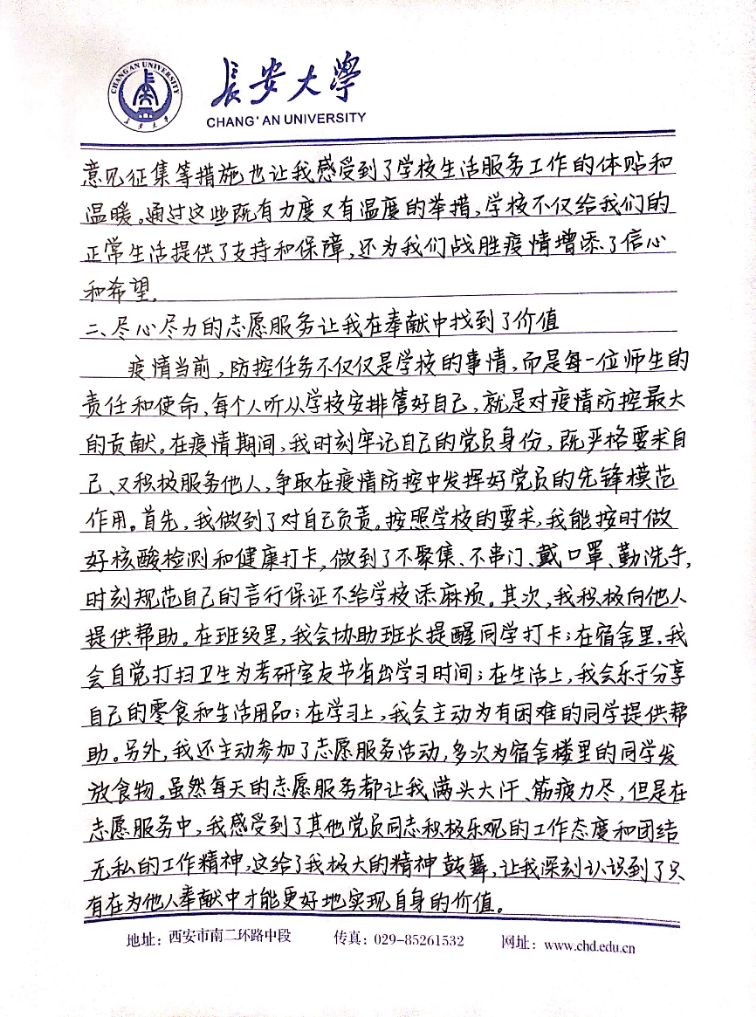 CHANG'AN UNIVERSITY
長安大學
長安大學
CHANG'AN UNIVERSITY
意见征集等措施也让我感受到了学校生活服务工作的体贴和
温暖。通过这些既有力度又有温度的举措,学校不仅给我们的
正常生活提供了支持和保障,还为我们战胜疫情增添了信心
和希望。
二、尽心尽力的志愿服务让我在奉献中找到了价值
疫情当前,防控任务不仅仅是学校的事情,而是每一位师生的
责任和使命、每个人听从学校安排管好自己,就是对疫情防控最大
的贡献。在疫情期间,我时刻牢记自己的党员身份,既严格要求自
己、又积极服务他人,争取在疫情防控中发挥好党员的先锋模范
作用。首先,我做到了对自己负责。按照学校的要求,我能按时做
好核酸检测和健康打卡,做到了不聚集、不串门、戴口罩、勤洗手,
时刻规范自己的言行保证不给学校添麻烦。其次,我积极向他人
提供帮助。在班级里,我会协助班长提醒同学打卡;在宿舍里,我
会自觉打扫卫生为考研室友节省出学习时间;在生活上,我会乐于分享
自己的零食和生活用品;在学习上,我会主动为有困难的同学提供帮
助。另外,我还主动参加了志愿服务活动,多次为宿舍楼里的同学发
放食物。虽然每天的志愿服务都让我满头大汗、筋疲力尽,但是在
志愿服务中,我感受到了其他党员同志积极乐观的工作态度和团结
无私的工作精神,这给了我极大的精神鼓舞,让我深刻认识到了只
有在为他人奉献中才能更好地实现自身的价值。
地址:西安市南二环路中段 传真:029-85261532 网址:www.chd.edu.cn